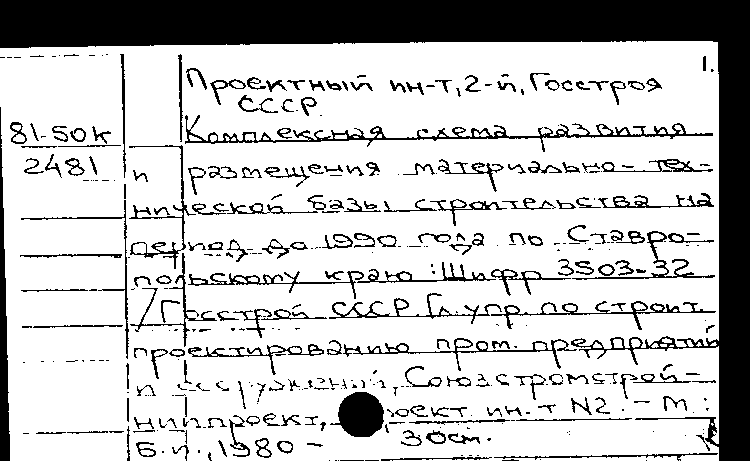 1.
Проектный ин-т, 2-й, Госстроя
СССР.
81-50к Комплексная схема развития
2481 и размещения материально-тех-
нической базы строительства на
период до 1990 года по Ставро-
польскому краю: Шифр 3503-32
/Госстрой СССР. Гл. упр. по строит.
проектированию пром. предприятий
и сооружений, Союзстромстрой-
ниипроект, ин-т N2. - М:
Б.и., 1980 - 30см.